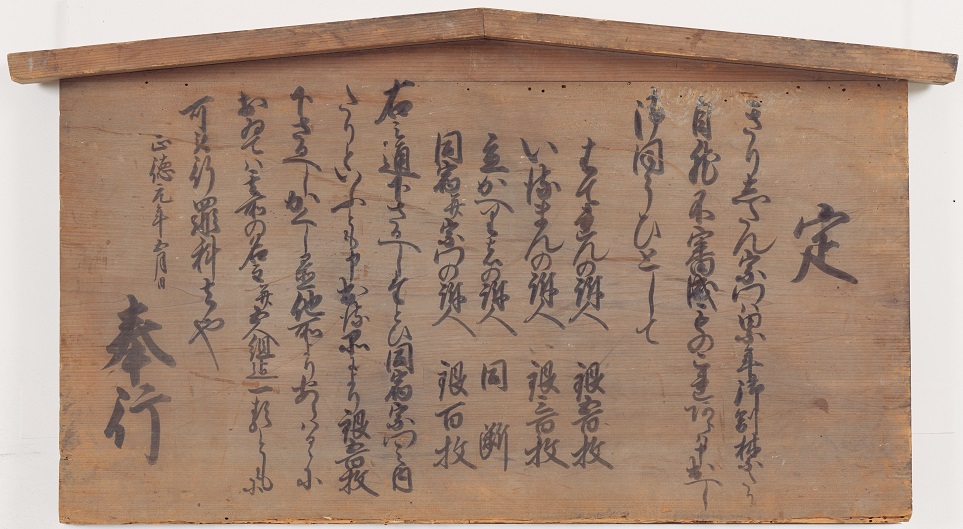 定
きりしたん宗門は累年御制禁たり
自然不審成ものこれあらは申出へし
御ほうひとして
はてれんの訴人 銀五百枚
いるまんの訴人 銀三百枚
立かへりもの訴人 同断
同宿并宗門の訴人 銀百枚
右之通下さるへしたとひ同宿宗門之内
たりといふとも申出る品により銀五百枚
下さるへしかくし置他所よりあらはるゝに
おゐてハ其所の名主并五人組迄一類ともに
可被行罪科者也
正徳元年五月日
奉行